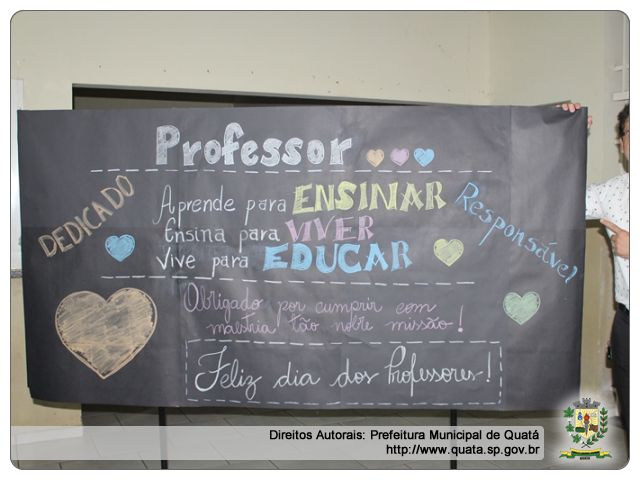 Professor
DEDICADO
Aprende para ENSINAR
Ensina para VIVER
Vive para EDUCAR
Responsável
Obrigado por cumprir com
maestria tão nobre missão!
Feliz dia dos Professores!
Direitos Autorais: Prefeitura Municipal de Quatá
http://www.quata.sp.gov.br